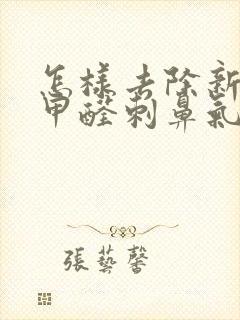 怎樣去除新
甲醛刺鼻氣
張藝馨